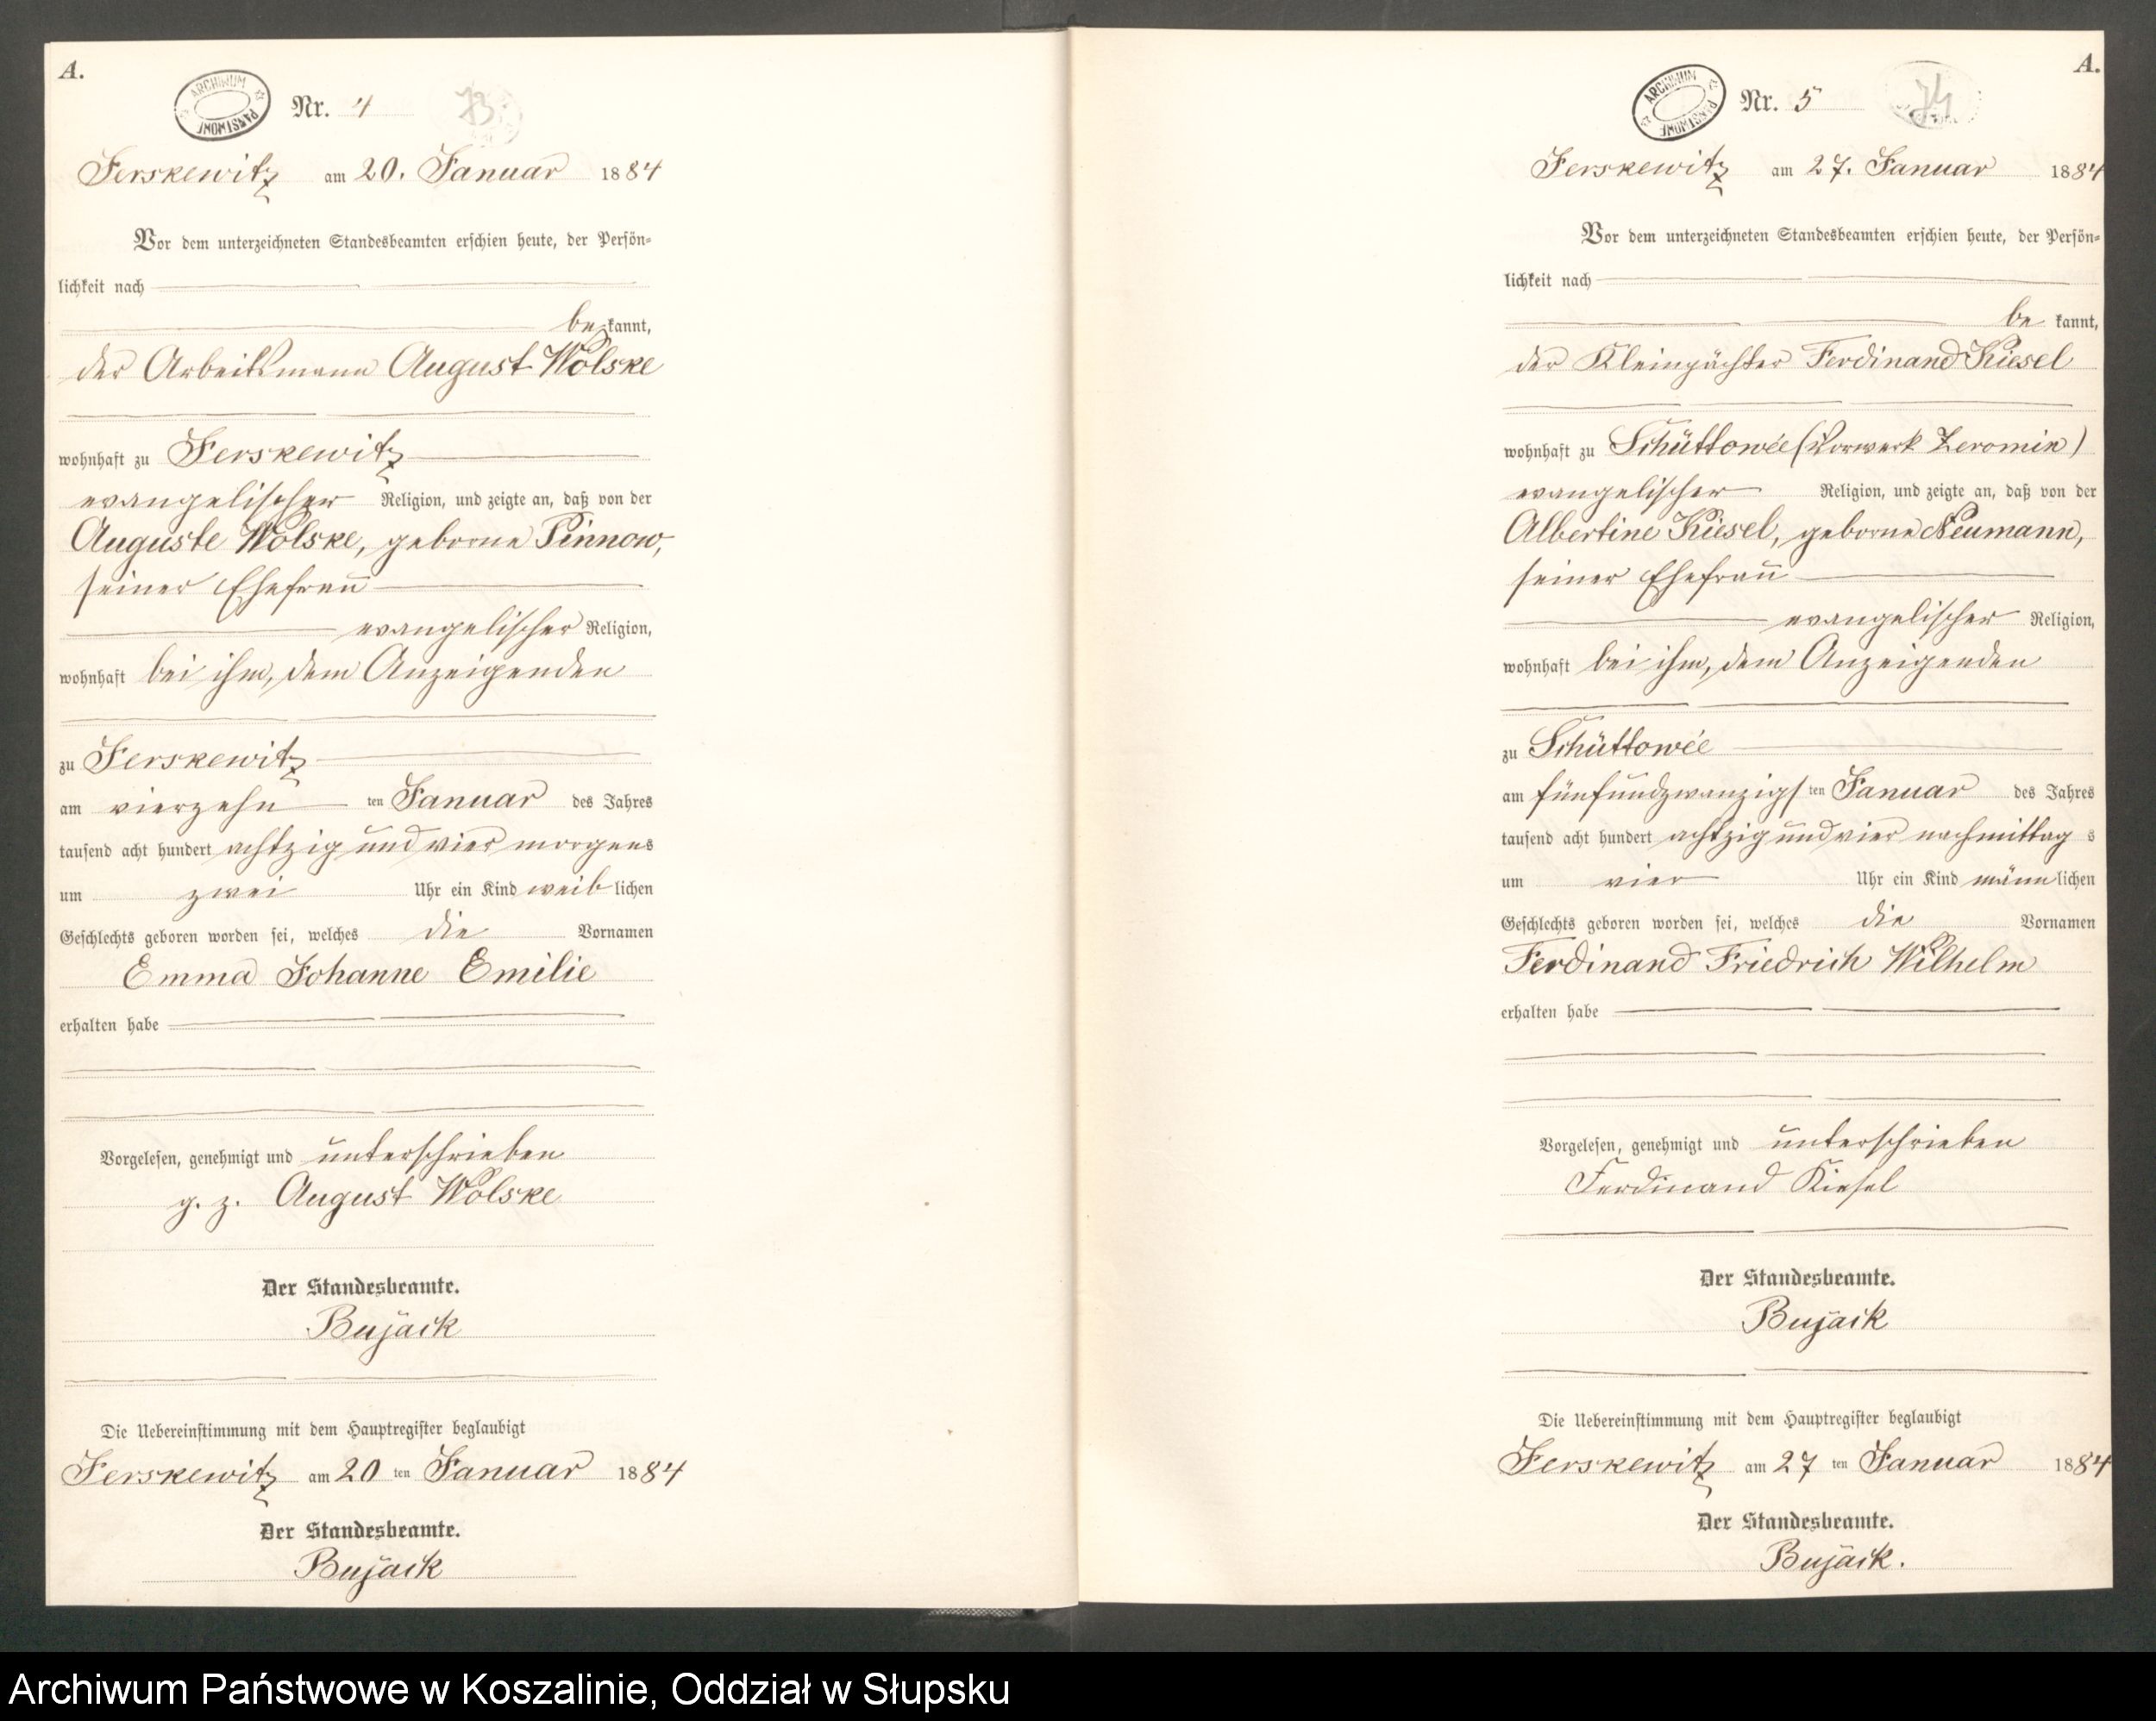 A.
ARCHIWUM PAŃSTWOWE
Nr. 4
73
Jerskewitz am 20. Januar 1884
Vor dem unterzeichneten Standesbeamten erschien heute, der Persön-
lichkeit nach
be kannt,
der Arbeitsmann August Wolske
wohnhaft zu Jerskewitz
evangelischer Religion, und zeigte an, daß von der
Auguste Wolske, geborne Pinnow,
seiner Ehefrau
evangelischer Religion,
wohnhaft bei ihm, dem Anzeigenden
zu Jerskewitz
am vierzehn ten Januar des Jahres
tausend acht hundert achtzig und vier morgens
um zwei Uhr ein Kind weib lichen
Geschlechts geboren worden sei, welches die Vornamen
Emma Johanne Emilie
erhalten habe
Vorgelesen, genehmigt und unterschrieben
g. z. August Wolske
Der Standesbeamte.
Bujack
Die Uebereinstimmung mit dem Hauptregister beglaubigt
Jerskewitz am 20 ten Januar 1884
Der Standesbeamte.
Bujack
A.
ARCHIWUM PAŃSTWOWE
Nr. 5
74
Jerskewitz am 27. Januar 1884
Vor dem unterzeichneten Standesbeamten erschien heute, der Persön-
lichkeit nach
be kannt,
der Kleinpächter Ferdinand Kiesel
wohnhaft zu Schüttowée (Vorwerk Zeromin)
evangelischer Religion, und zeigte an, daß von der
Albertine Kiesel, geborne Neumann,
seiner Ehefrau
evangelischer Religion,
wohnhaft bei ihm, dem Anzeigenden
zu Schüttowée
am fünfundzwanzigs ten Januar des Jahres
tausend acht hundert achtzig und vier nachmittag s
um vier Uhr ein Kind männ lichen
Geschlechts geboren worden sei, welches die Vornamen
Ferdinand Friedrich Wilhelm
erhalten habe
Vorgelesen, genehmigt und unterschrieben
Ferdinand Kiesel
Der Standesbeamte.
Bujack
Die Uebereinstimmung mit dem Hauptregister beglaubigt
Jerskewitz am 27 ten Januar 1884
Der Standesbeamte.
Bujack.
Archiwum Państwowe w Koszalinie, Oddział w Słupsku